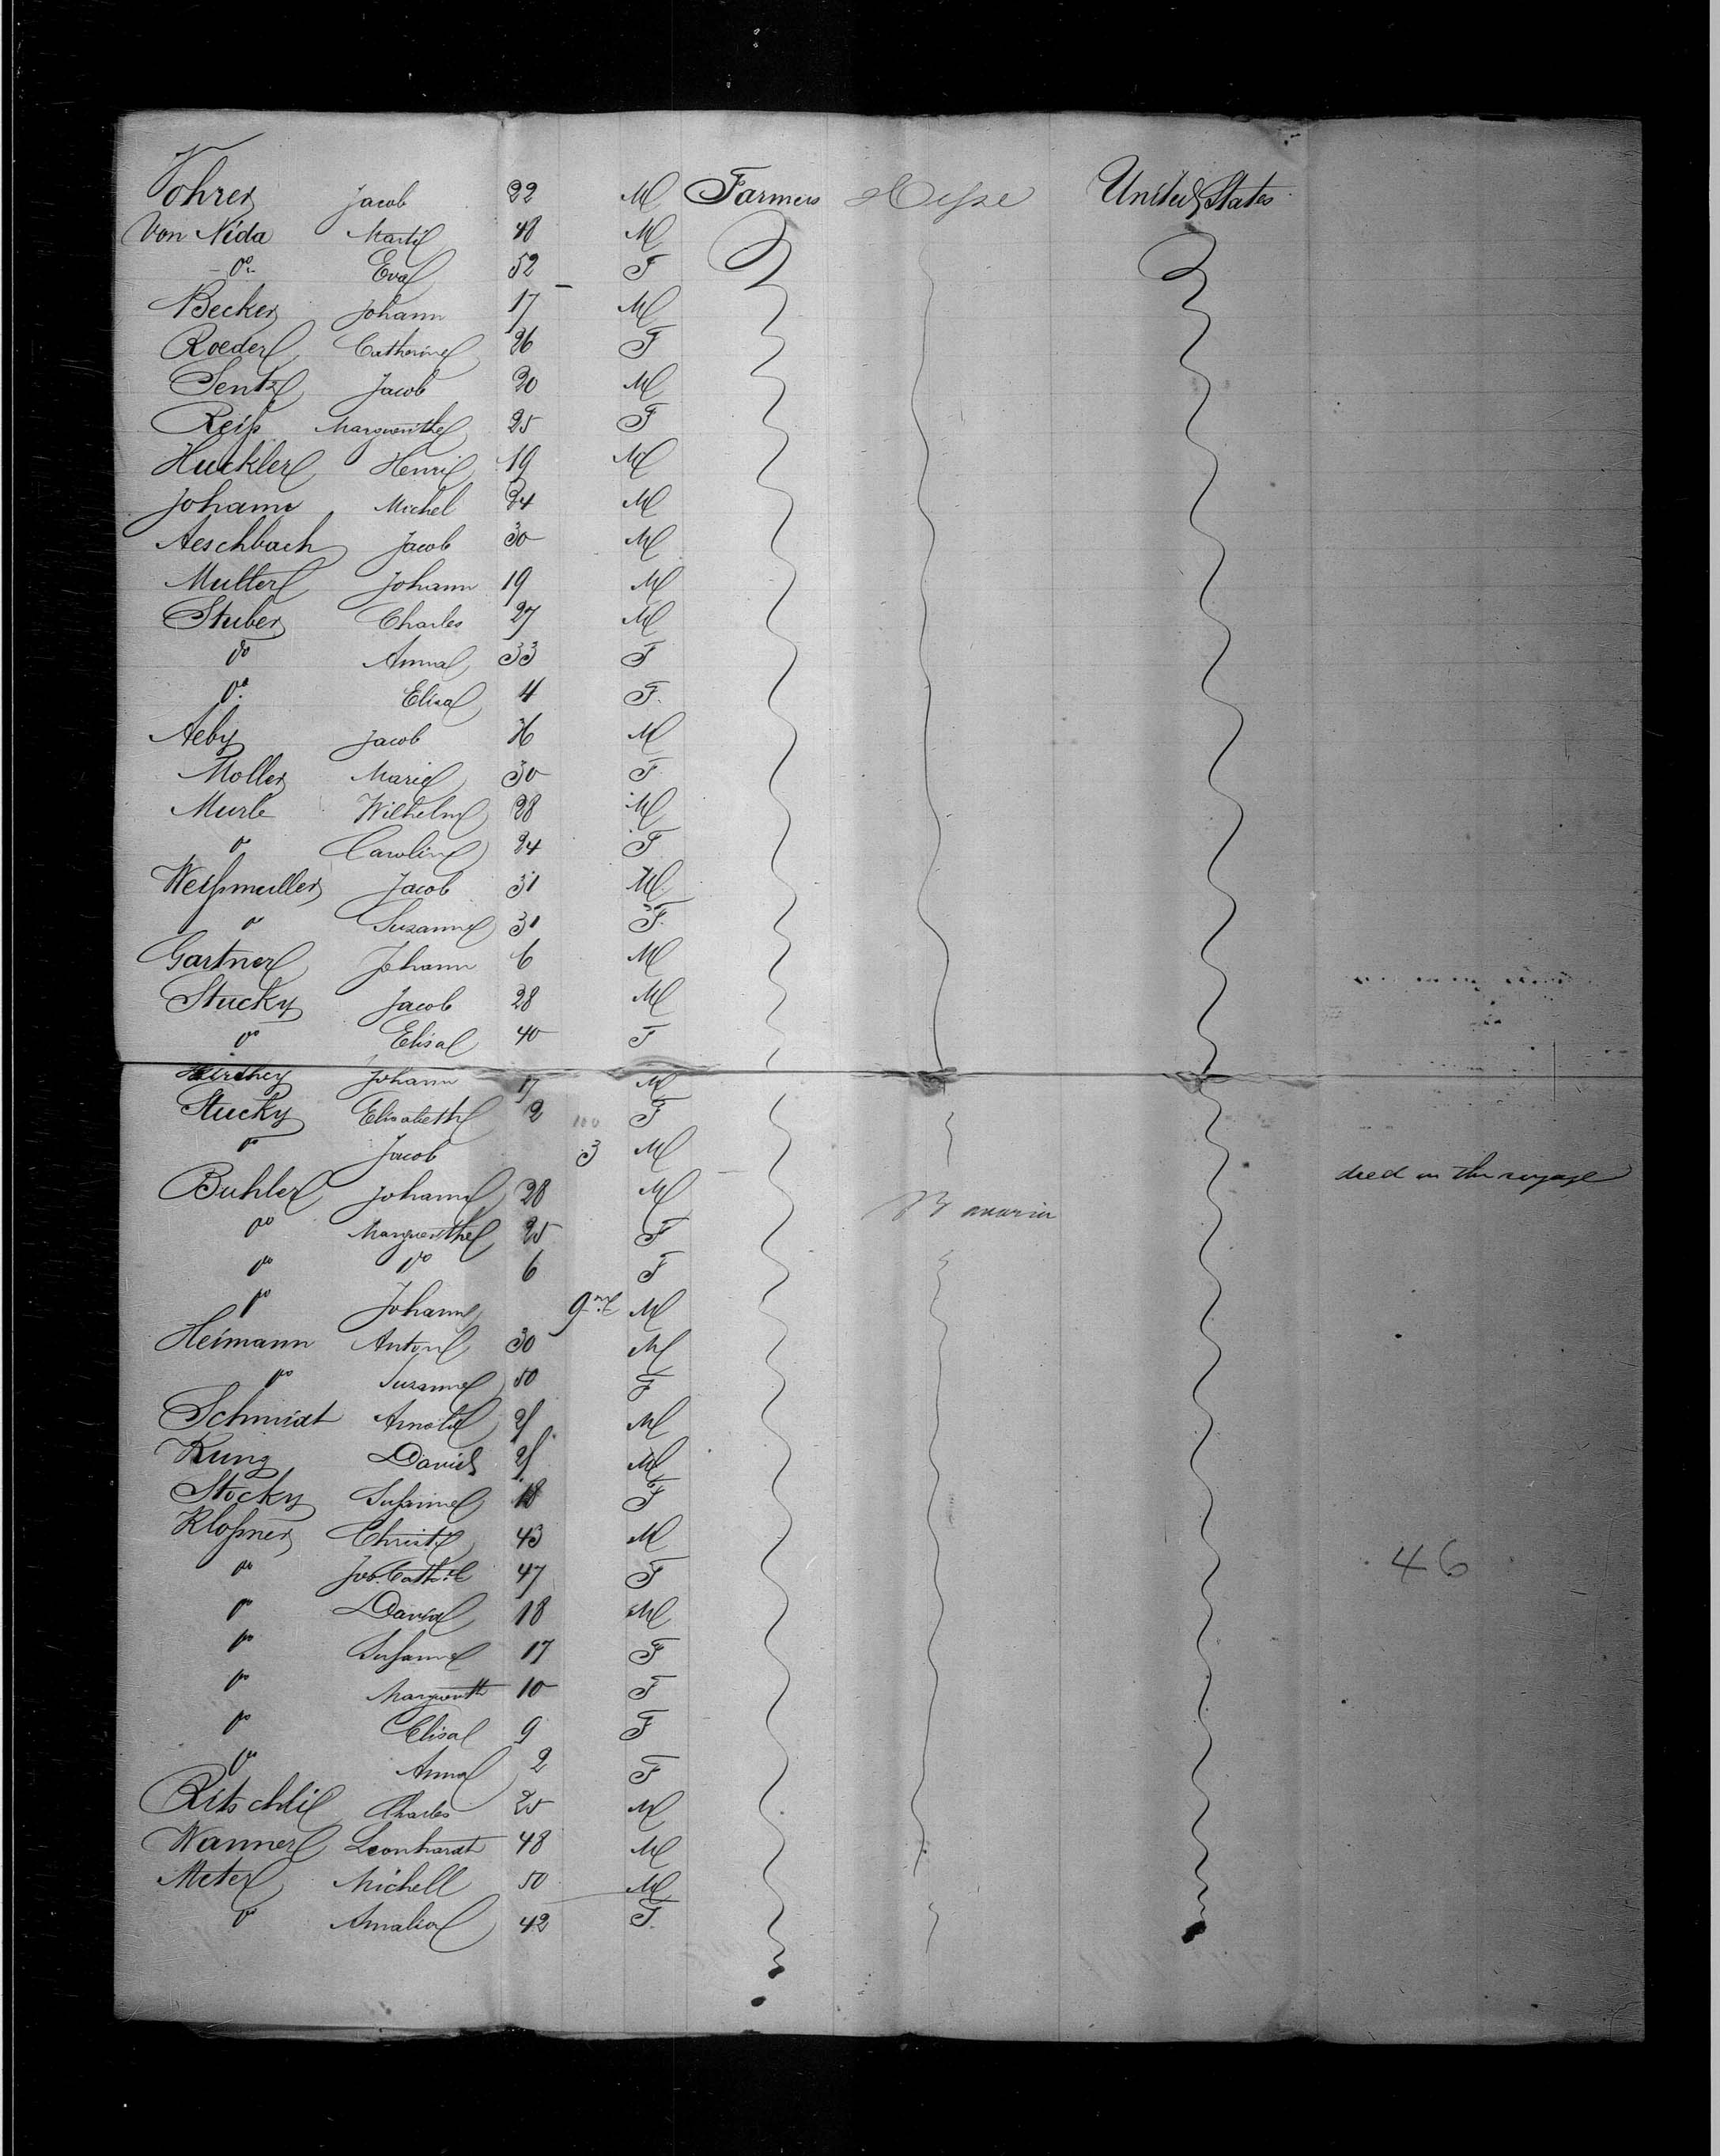 Vohrer Jacob 22 M Farmers Hesse United States
Von Nida Marti 48 M
do Eva 52 F
Becker Johann 17 M
Roeder Catherine 26 F
Sentz Jacob 20 M
Reiss Marguerithe 25 F
Huckler Henri 19 M
Johann Michel 24 M
Aeschbach Jacob 30 M
Muller Johann 19 M
Stuber Charles 27 M
do Anna 33 F
do Elisa 4 F.
Aeby Jacob M
Moller Marie 30 F
Murle Wilhelm 28 M
do Caroline 24 F
Weissmuller Jacob 31 M
do Suzanne 31 F.
Gartner Johann 6 M
Stucky Jacob 28 M
do Elisa 40 F
Johann 17 M
Stucky Elisabeth 2 F
do Jacob 3 M died on the voyage
Buhler Johann 28 M Bavaria
do Marguerithe 25 F
do do 6 F
do Johann 9 M
Heimann Anton 30 M
do Suzanne 50 F
Schmidt Arnold M
Kung David M
Stocky Susanne 18 F
Klossner Christ 43 M
do 47 F 46
do David 18 M
do Susanne 17 F
do Marguerith 10 F
do Elisa 9 F
do Anna 2 F
Ritschli Charles 25 M
Wanner Leonhardt 48 M
Meter Michell 50 M
do Amalia 42 F.